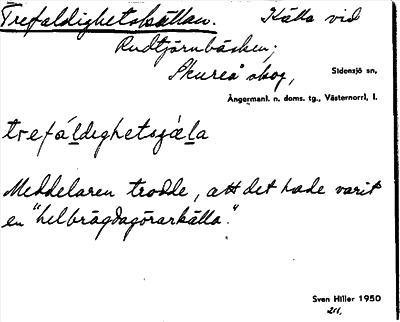 Trefaldighetskällan. Källa vid
Rudtjärnbäcken;
Skureå skog, Sidensjö sn,
Ångermanl. n. doms. tg., Västernorrl. l.
trefáldighetsɟæla
Meddelaren trodde, att det hade varit
en "helbrägdagörarkälla."
Sven Hiller 1950